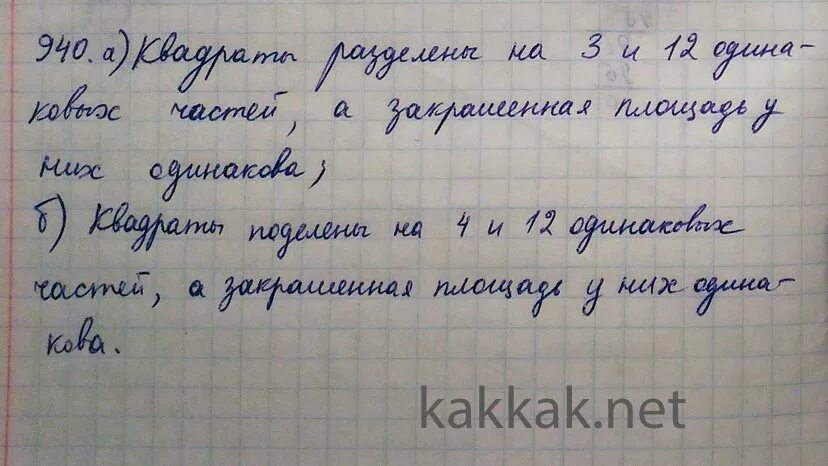 940. а) Квадраты разделены на 3 и 12 одина-
ковых частей, а закрашенная площадь у
них одинакова;
б) Квадраты поделены на 4 и 12 одинаковых
частей, а закрашенная площадь у них одина-
кова.
kakkak.net